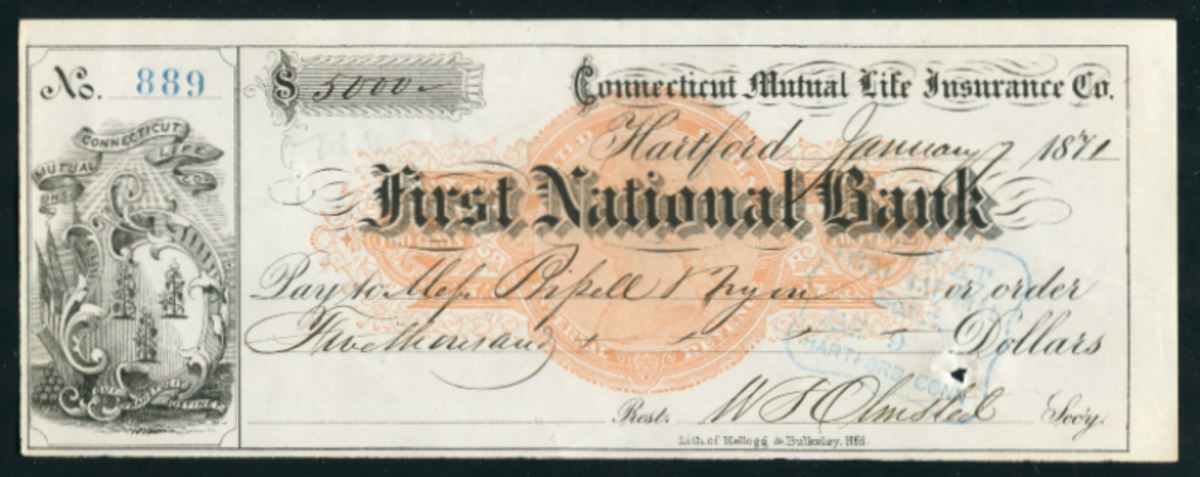 No. 889
CONNECTICUT
MUTUAL LIFE
INS. CO.
$ 5000
Connecticut Mutual Life Insurance Co.
Hartford January 7 1871
First National Bank
Pay to Mess. Bissell & or order
Five thousand Dollars
HARTFORD CONN
Rest. W S Olmsted Secy.
Lith. of Kellogg & Bulkeley. Hfd.